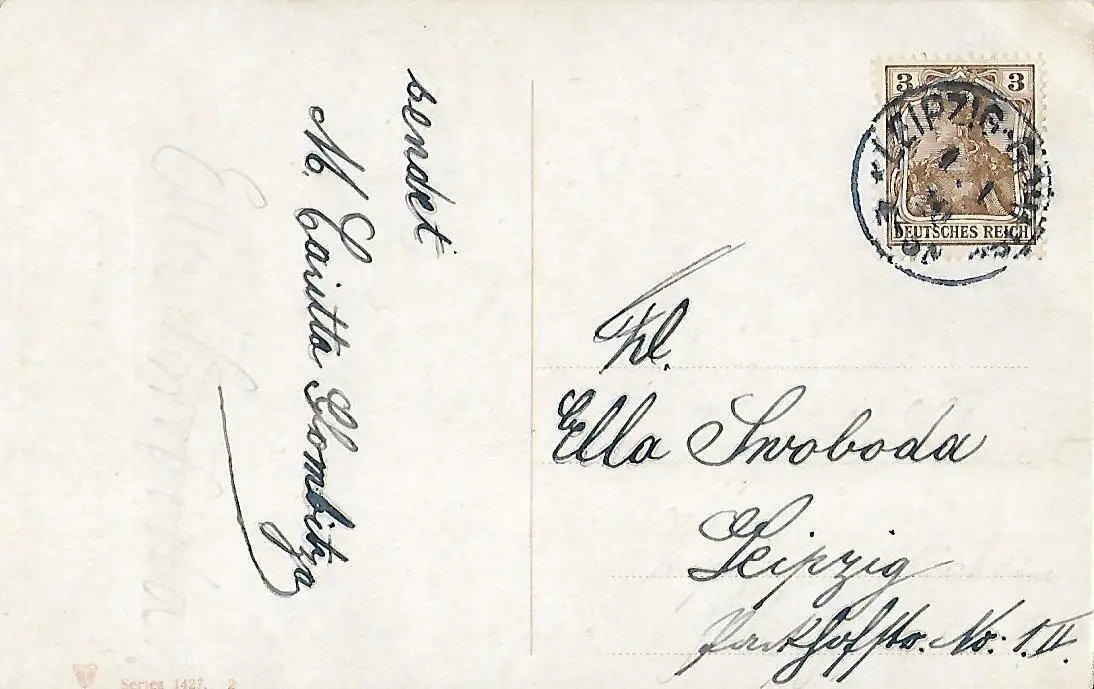 sendet
M. Caritta Glombitza
3 3
LEIPZIG
DEUTSCHES REICH
Frl.
Ella Swoboda
Leipzig
Packhofstr. No. 1. II.
Series 1427. 2